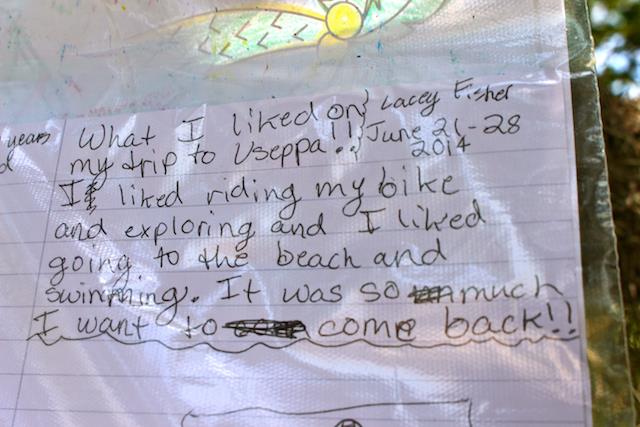 years
What I liked on } Lacey Fisher
my trip to Useppa!! } June 21-28
2014
I liked riding my bike
and exploring and I liked
going to the beach and
swimming. It was so much
I want to come back!!